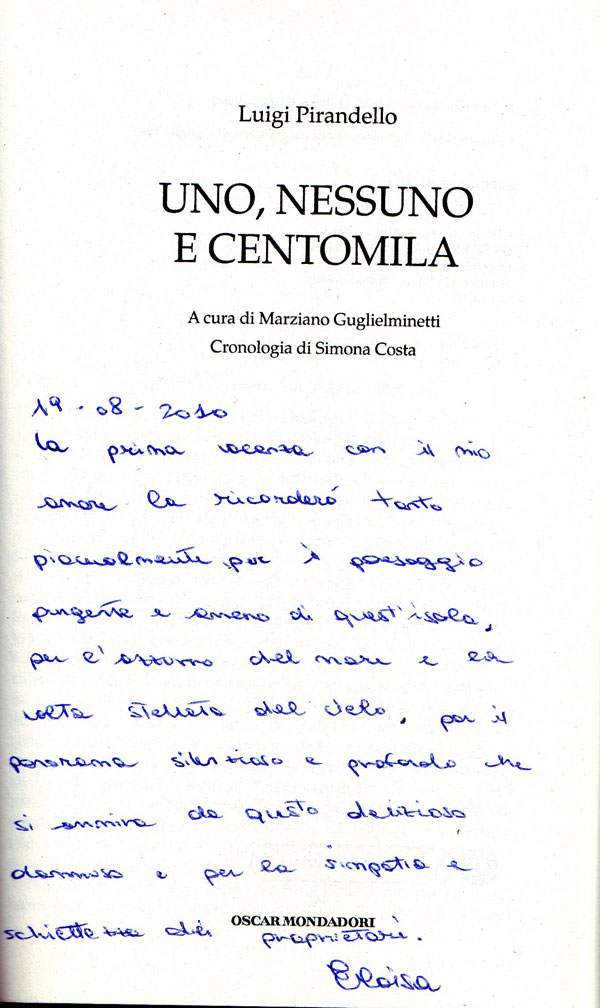 Luigi Pirandello
UNO, NESSUNO
E CENTOMILA
A cura di Marziano Guglielminetti
Cronologia di Simona Costa
19-08-2010
La prima vacanza con il mio
amore la ricorderó tanto
piacevolmente per il paesaggio
pungente e ameno di quest'isola,
per l'azzurro del mare e la
volta stellata del cielo, per il
panorama silenzioso e profondo che
si ammira da questo delizioso
dammuso e per la simpatia e
schiettezza dei proprietari.
OSCAR MONDADORI
Eloisa